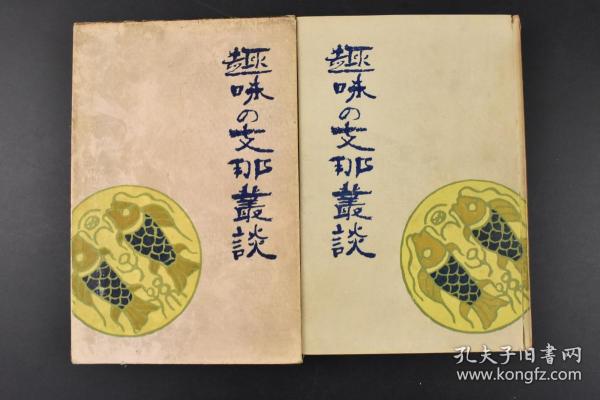 趣味の支那叢談
趣味の支那叢談
孔夫子旧书网
www.kongfz.com